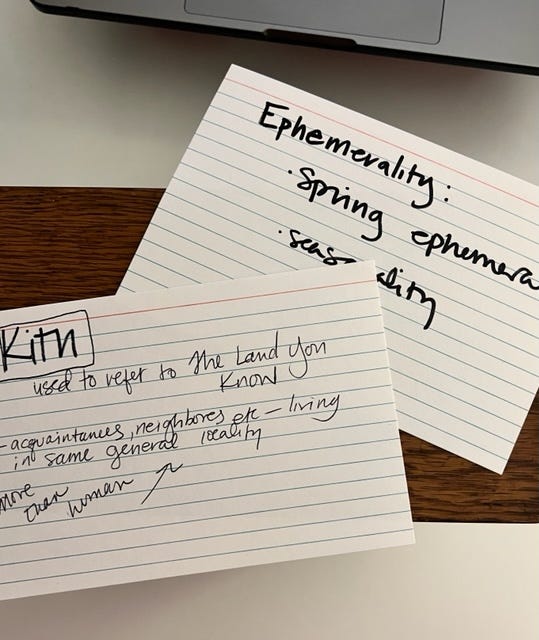 Ephemerality:
· Spring ephemera
· seas ality
Kith
used to refer to The Land You
Know
- acquaintances, neighbores etc – living
in same general locality
more
than
human